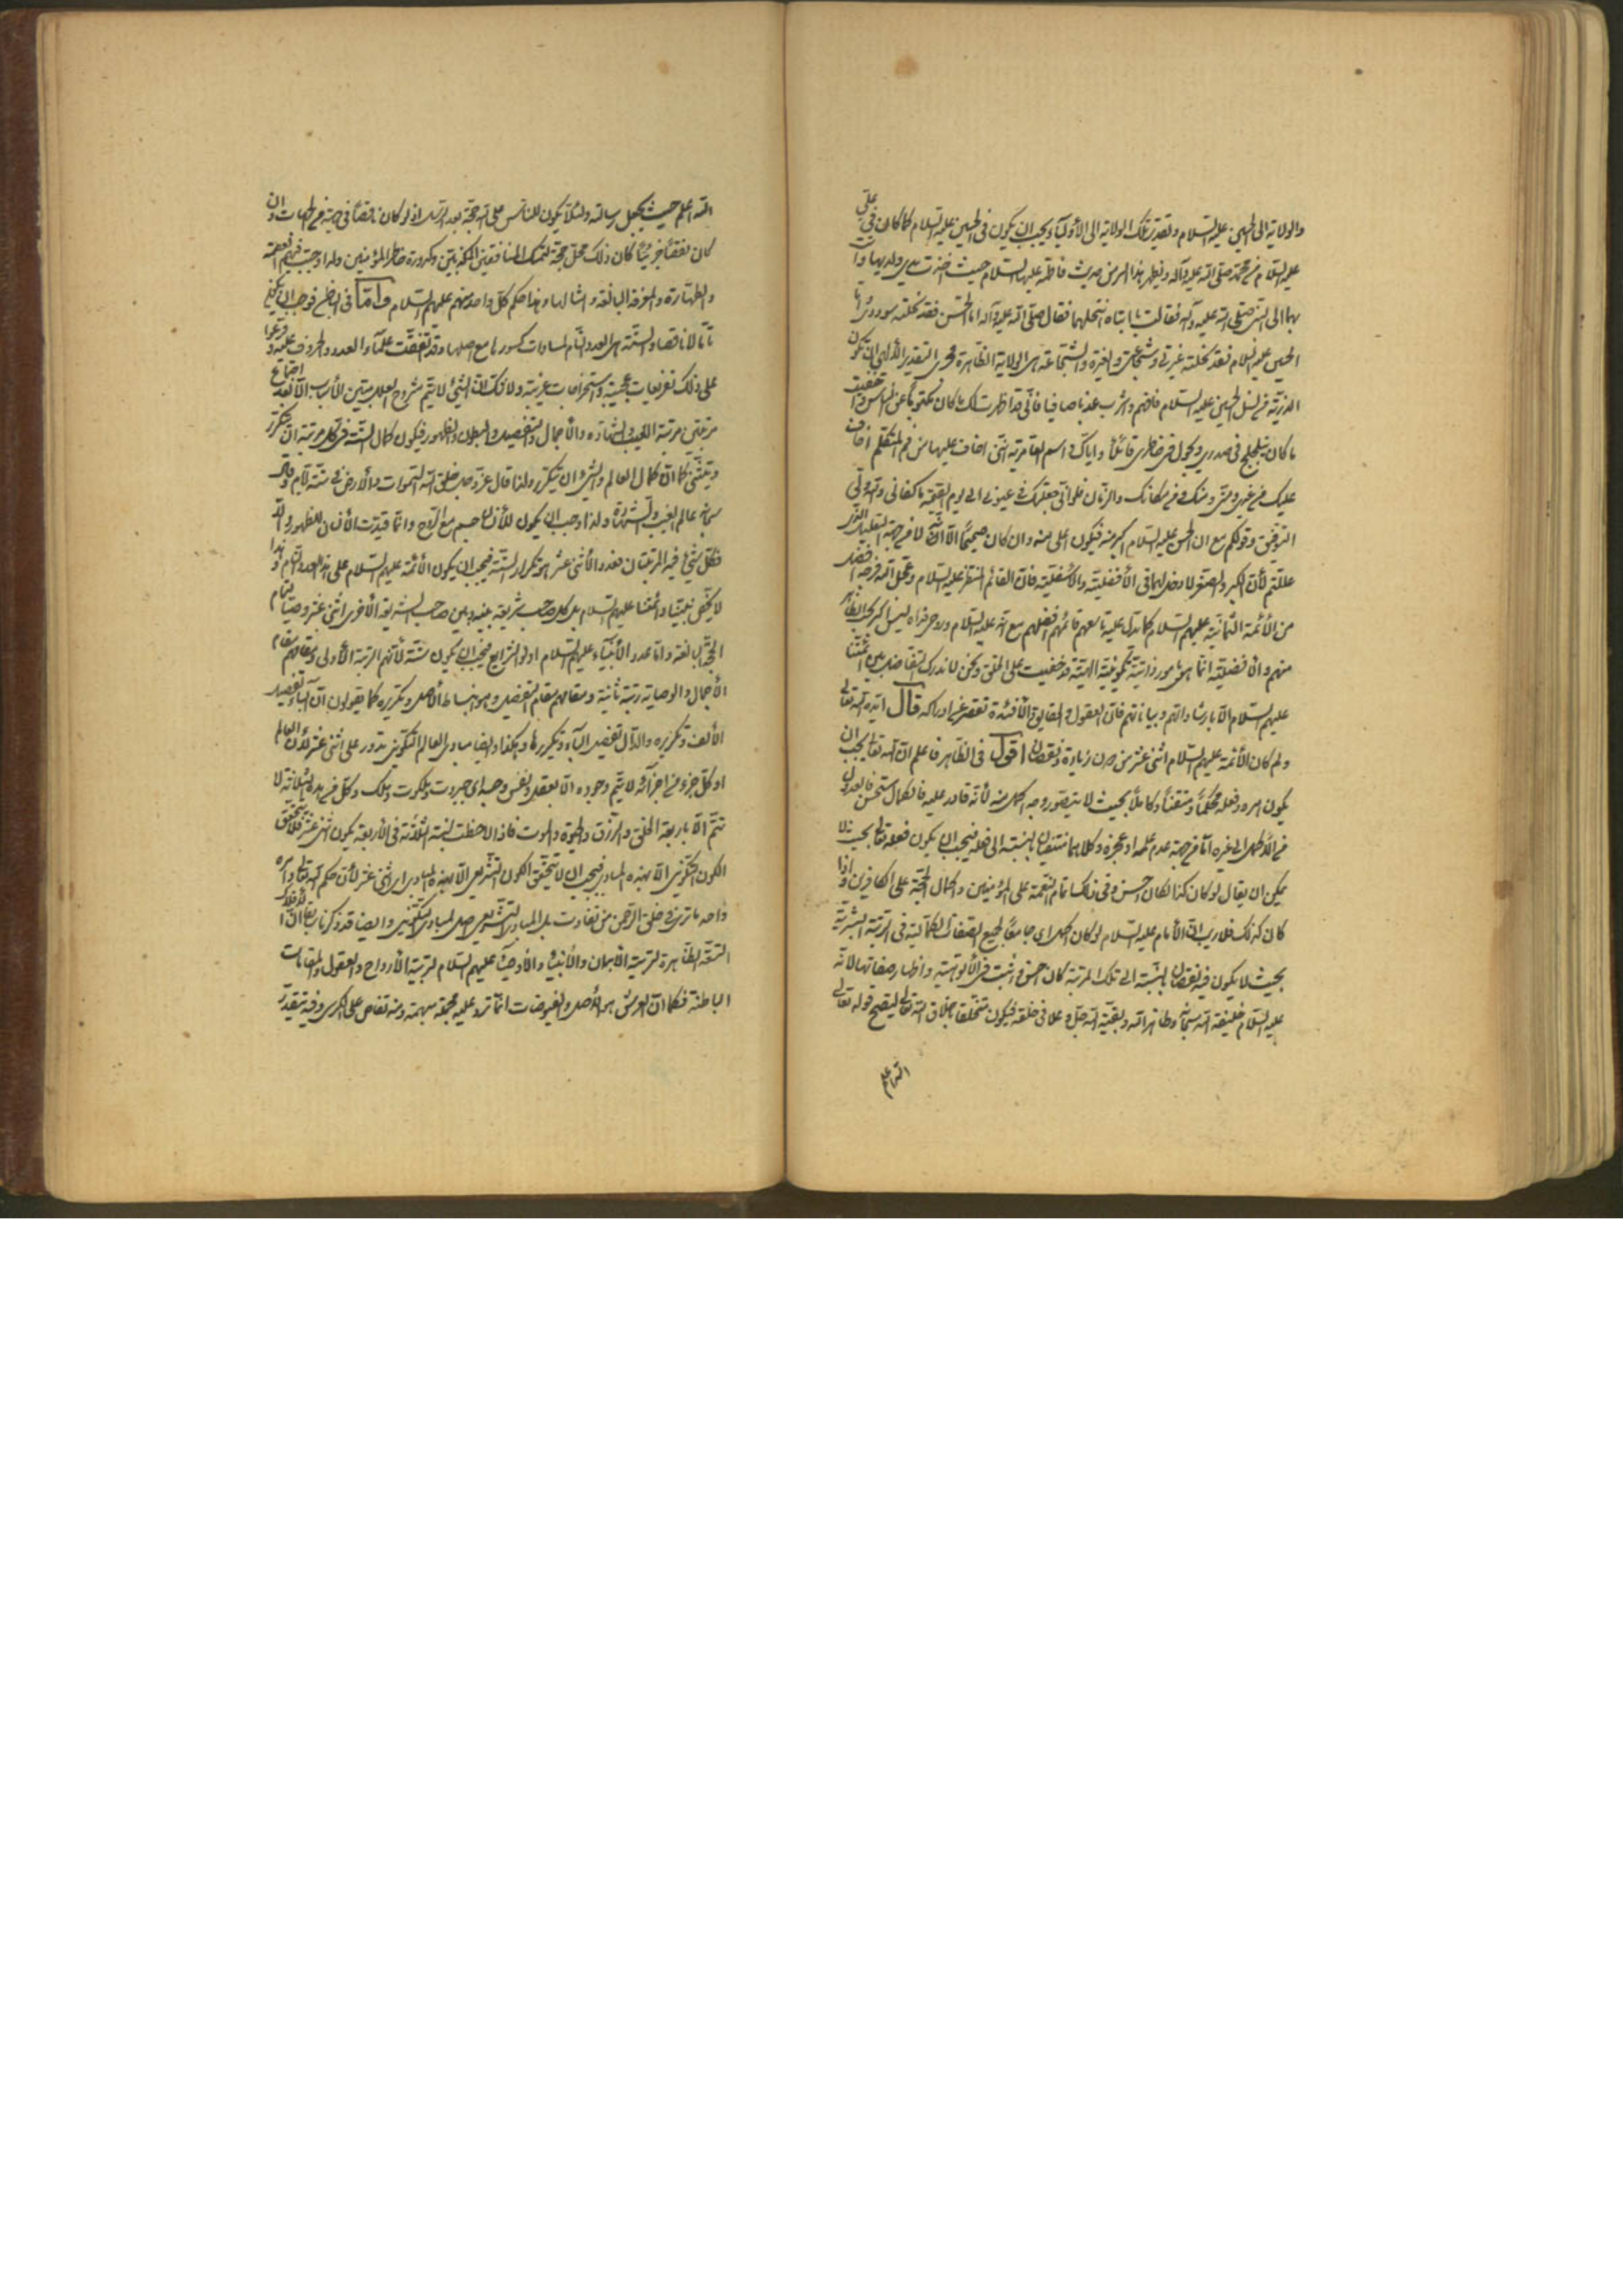 والولاية الى الحسين عليه السلام وتصير تلك الولاية الى الأولياء ويجب ان يكون في الحسين عليه السلام كما كان في علي
عليه السلام مع محمد صلى الله عليه وآله ويظهر هذا السر من حديث فاطمة عليها السلام حيث اخذت بيدي ولديها واتت
بهما الى النبي صلى الله عليه وآله فقالت يا ابتاه انحلهما فقال صلى الله عليه وآله اما الحسن فقد نحلته سوددي واما
الحسين عليه السلام فقد نحلته غيرتي وشجاعتي والغيرة والشجاعة هي الولاية الظاهرة فجرى التقدير الألهي ان تكون
الذرية في نسل الحسين عليه السلام فافهم واشرب عذبا صافيا فأني قد اظهرت لك ما كان مكتوما عن الناس واخفيت
ما كان يتلجلج في صدري ويجول في خاطري قائلا واياك واسم العامرية انني اخاف عليها من فم المتكلم اخاف
عليك من غيري ومني ومنك ومن مكانك والزمان فلو اني جعلتك في عيوني الى يوم القيمة ما كفاني والله ولي
التوفيق وقولكم مع ان الحسن عليه السلام اكبر منه فيكون اعلى منه وان كان صحيحا الا انه لا من جهة التعليل الذي
عللتم لأن الكبر والصغر لا دخل لهما في الأفضلية والاسفلية فان القائم المنتظر عليه السلام وعجل الله فرجه افضل
من الأئمة الثمانية عليهم السلام كما تدل عليه تاسعهم قائمهم افضلهم مع انه عليه السلام وروحي فداه ليس اكبر بحسب الظاهر
منهم وانما فضيلته انما هي امور ذاتية تكوينية الهية قد خفيت على الخلق ونحن لا ندرك التفاضل بين ائمتنا
عليهم السلام الا بارشاداتهم وبياناتهم فان العقول والحقايق الأفئدة تقصر عن ادراكه قال ايده الله تعالى
ولم كان الأئمة عليهم السلام اثنى عشر من دون زيادة ونقصان اقول في الظاهر فاعلم ان الله تعالى يجب ان
يكون امره وفعله محكما ومتقنا وكاملا بحيث لا يتصور وجه اكمل منه لأنه قادر عليه فالكمال استحسن فالعدول
من الأكمل الى غيره اما من جهة عدم علمه او عجزه وكلاهما منتفيان بالنسبة الى فعله فيجب ان يكون فعله تعالى بحيث لا
يمكن ان يقال لو كان كذا لكان احسن وفي ذلك تمام النعمة على المؤمنين واكمال الحجة على الكافرين واذا
كان كذلك فلا ريب ان الأمام عليه السلام لو كان اكمل اي جامعا لجميع الصفات الكمالية في الرتبة البشرية
بحيث لا يكون فيه نقصان بالنسبة الى تلك المرتبة كان احسن واثبت في الألوهية واظهار صفاتها لأنه
عليه السلام خليفة الله سبحانه وظاهر الله وبقية الله جل وعلا في خلقه فيكون متخلقا باخلاق الله تعالى ليتضح قوله تعالى
الله اعلم
الله اعلم حيث يجعل رسالته ولئلا يكون للناس على الله حجة بعد الرسل اذ لو كان ناقصا في جهة من الجهات وان
كان نقصا جزئيا كان ذلك محل حجة لتمسك المنافقين المكذبين وكدورة خاطر المؤمنين ولذا وجب فيهم العصمة
والطهارة والمعرفة البالغة وامثالها وهذا حكم كل واحد منهم عليهم السلام واما في الباطن فوجب ان يكون
تاما لا ناقصا والستة هي العدد التام لمساوات كسورها مع اصلها وقد اتفقت علماء العدد والحروف عليه وفرعوا
على ذلك تفريعات عجيبة واستخراجات غريبة ولا شك ان الشئ لا يتم مشروح العلل مبين الأسباب الا بعد اجتماع
مرتبتين مرتبة الغيب والشهادة والأجمال والتفصيل والبطون والظهور فيكون كمال الستة في كل مرتبة ان تتكرر
وتتثنى كما ان كمال العالم والشئ ان يتكرر ولذا قال عز وجل خلق الله السموات والأرض في ستة ايام وقد
سبحانه عالم الغيب والشهادة ولذا وجب ان يكون للأنسان جسم مع الروح وانما قيدت الأنسان للظهور والا
فكل شئ فيه المرتبتان فعدد الأثنى عشر هو تكرار الستة فيجب ان يكون الأئمة عليهم السلام على هذا العدد التام وهذا
لا يختص بنبينا وائمتنا عليهم السلام بل كل صاحب شريعة بينه وبين صاحب الشريعة الأخرى اثنى عشر وصيا لتمام
الحجة البالغة واما عدد الأنبياء عليهم السلام اولو الشرايع فيجب ان يكون ستة لأنهم الرتبة الأولى ومقامهم مقام
الأجمال والوصاية رتبة ثانية ومقامهم مقام التفصيل وهو انبساط الأصل وتكريره كما يقولون ان الباء تفصيل
الألف وتكريره والدال تفصيل الباء وتكريرها وهكذا وايضا مبادي العالم التكويني تدور على اثنى عشر لأن العالم
او كل جزء من اجزائه لا يتم وجوده الا بعقل ونفس وجسد اي جبروت وملكوت وملك وكل من هذه الثلاثة لا
تتم الا باربعة الخلق والرزق والحيوة والموت فاذا لاحظت نسبة الثلاثة في الأربعة يكون اثنى عشر فلا يتحقق
الكون التكويني الا بهذه المبادي فيجب ان لا يتحقق الكون التشريعي الا بهذه المبادي اي اثنى عشر لأن حكم الله تعالى وامره
واحد ما ترى في خلق الرحمن من تفاوت بل المبادي التشريعي اصل المبادي التكويني وايضا قد ذكرنا سابقا ان الافلاك
التسعة الظاهرة لتربية الأبدان والأنبياء والأوصياء عليهم السلام لتربية الأرواح والعقول والمقامات
الباطنة فكما ان العرش هو الأصل والفيوضات انما ترد عليه مجملة مبهمة ومنه تفاض على الكرسي وفيه تتقدر